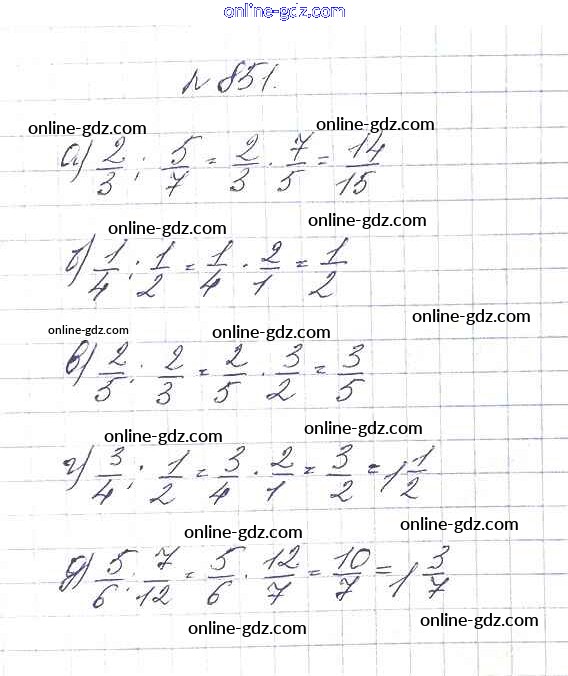 online-gdz.com
№ 851.
online-gdz.com online-gdz.com
а) 2/3 : 5/7 = 2/3 · 7/5 = 14/15
online-gdz.com online-gdz.com
б) 1/4 : 1/2 = 1/4 · 2/1 = 1/2
online-gdz.com online-gdz.com online-gdz.com
в) 2/5 : 2/3 = 2/5 · 3/2 = 3/5
online-gdz.com online-gdz.com
г) 3/4 : 1/2 = 3/4 · 2/1 = 3/2 = 1 1/2
online-gdz.com online-gdz.com
д) 5/6 : 7/12 = 5/6 · 12/7 = 10/7 = 1 3/7
online-gdz.com online-gdz.com